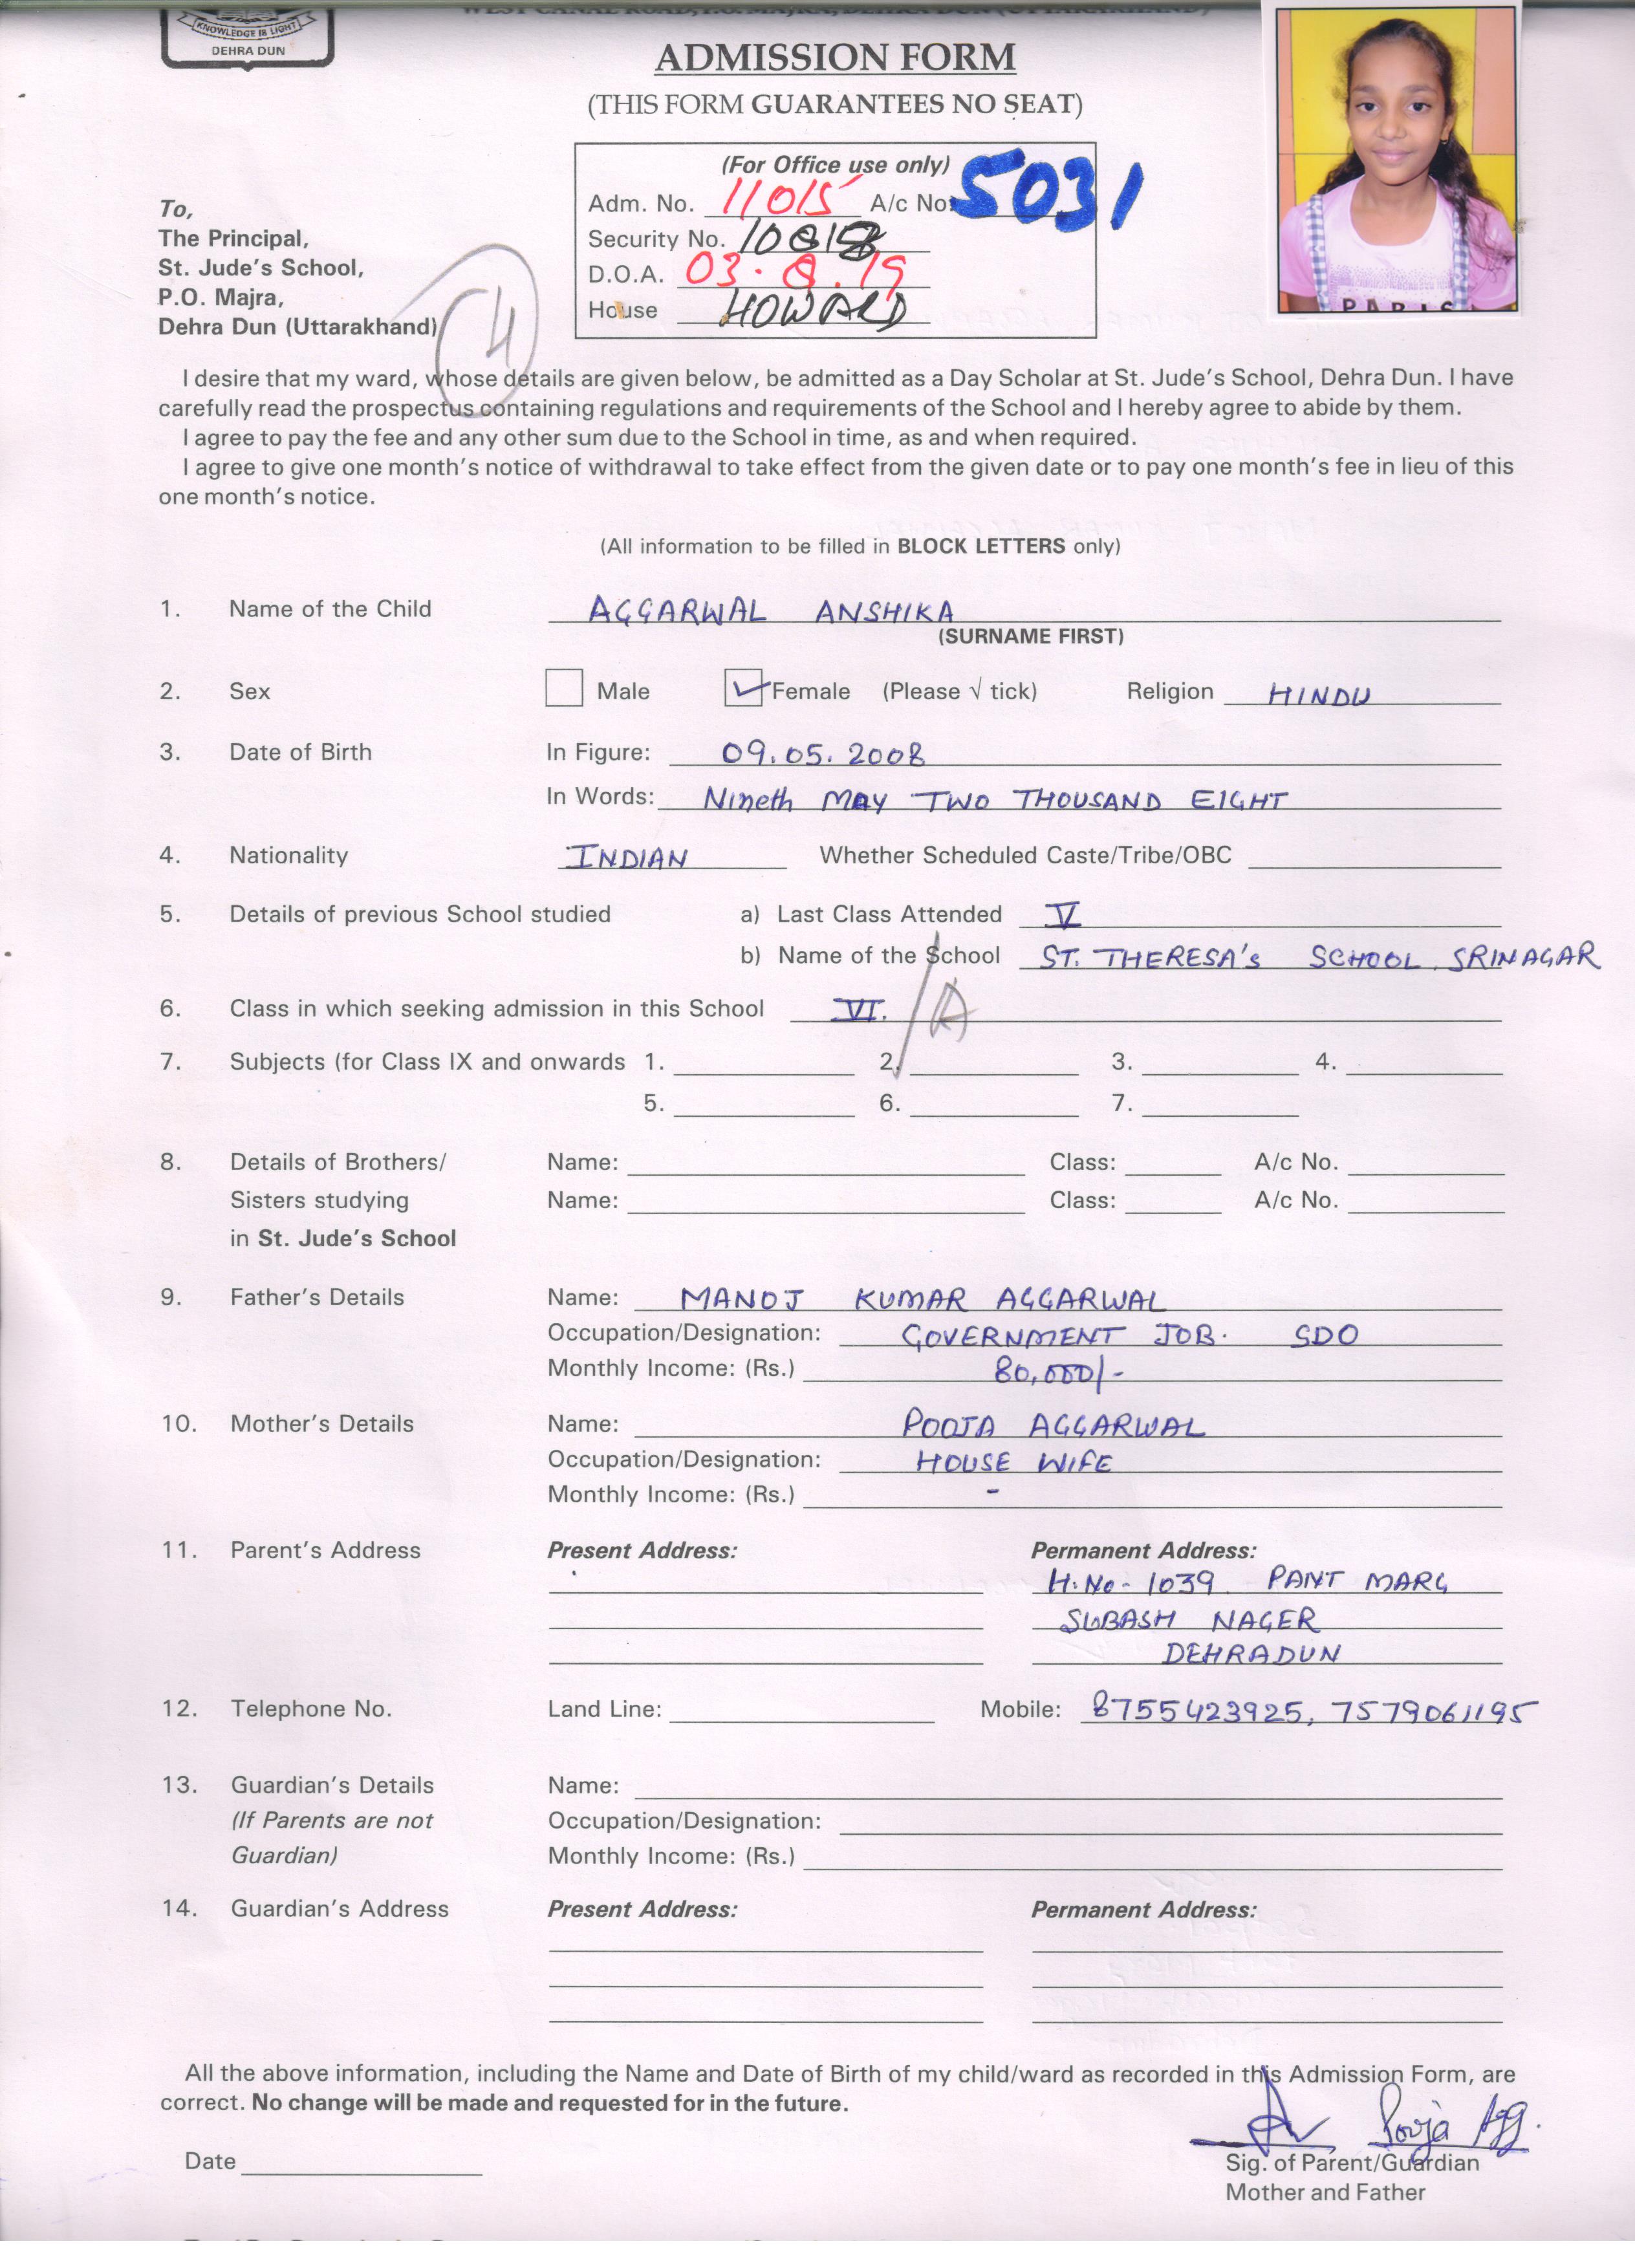 WEST CANAL ROAD, P.O. MAJRA, DEHRA DUN (UTTARAKHAND)
KNOWLEDGE IS LIGHT
DEHRA DUN
ADMISSION FORM
(THIS FORM GUARANTEES NO SEAT)
(For Office use only)
Adm. No. 11015 A/c No: 5031
Security No.
D.O.A. 03.8.19
House HOWARD
PARIS
To,
The Principal,
St. Jude's School,
P.O. Majra,
Dehra Dun (Uttarakhand)
4
I desire that my ward, whose details are given below, be admitted as a Day Scholar at St. Jude's School, Dehra Dun. I have
carefully read the prospectus containing regulations and requirements of the School and I hereby agree to abide by them.
I agree to pay the fee and any other sum due to the School in time, as and when required.
I agree to give one month's notice of withdrawal to take effect from the given date or to pay one month's fee in lieu of this
one month's notice.
(All information to be filled in BLOCK LETTERS only)
1. Name of the Child AGGARWAL ANSHIKA
(SURNAME FIRST)
2. Sex Male Female (Please √ tick) Religion HINDU
3. Date of Birth In Figure: 09.05.2008
In Words: Nineth MAY TWO THOUSAND EIGHT
4. Nationality INDIAN Whether Scheduled Caste/Tribe/OBC
5. Details of previous School studied a) Last Class Attended V
b) Name of the School ST. THERESA's SCHOOL SRINAGAR
6. Class in which seeking admission in this School VI. /A
7. Subjects (for Class IX and onwards 1. 2. 3. 4.
5. 6. 7.
8. Details of Brothers/ Name: Class: A/c No.
Sisters studying Name: Class: A/c No.
in St. Jude's School
9. Father's Details Name: MANOJ KUMAR AGGARWAL
Occupation/Designation: GOVERNMENT JOB. SDO
Monthly Income: (Rs.) 80,000/-
10. Mother's Details Name: POOJA AGGARWAL
Occupation/Designation: HOUSE WIFE
Monthly Income: (Rs.) -
11. Parent's Address Present Address: Permanent Address:
H.No- 1039 PANT MARG
SUBASH NAGER
DEHRADUN
12. Telephone No. Land Line: Mobile: 8755423925, 7579061195
13. Guardian's Details Name:
(If Parents are not Occupation/Designation:
Guardian) Monthly Income: (Rs.)
14. Guardian's Address Present Address: Permanent Address:
All the above information, including the Name and Date of Birth of my child/ward as recorded in this Admission Form, are
correct. No change will be made and requested for in the future.
Pooja Agg.
Date Sig. of Parent/Guardian
Mother and Father